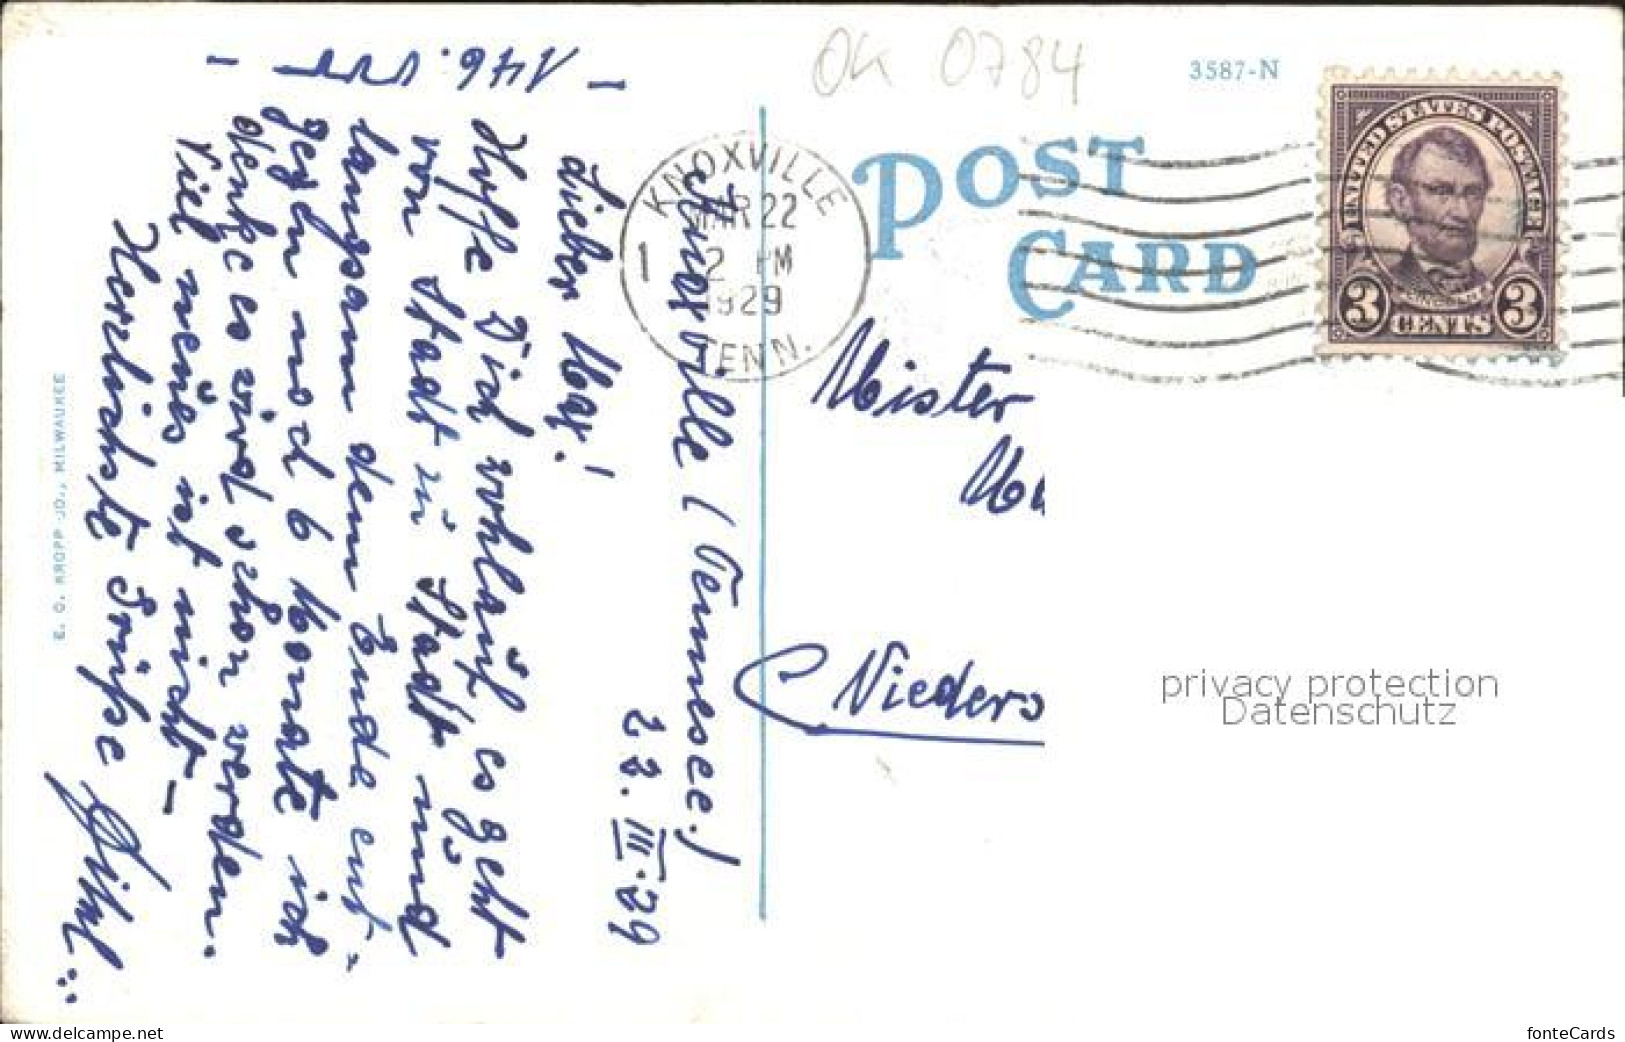 OK 0784
3587-N
POST
CARD
KNOXVILLE
MAR 22
2 PM
1929
TENN.
1
UNITED STATES POSTAGE
LINCOLN
3 CENTS 3
Mister
Nieders
Knoxville (Tennessee.)
22. III. 29
- 146.
Lieber Max!
Hoffe Dich wohlauf, es geht
von Stadt zu Stadt und
langsam dem Ende ent-
gegen noch 6 Monate ich
denke es wird schon werden.
Viel neues ist nicht -
Herzlichste Grüße
E. C. KROPP CO., MILWAUKEE
privacy protection
Datenschutz
www.delcampe.net
fonteCards